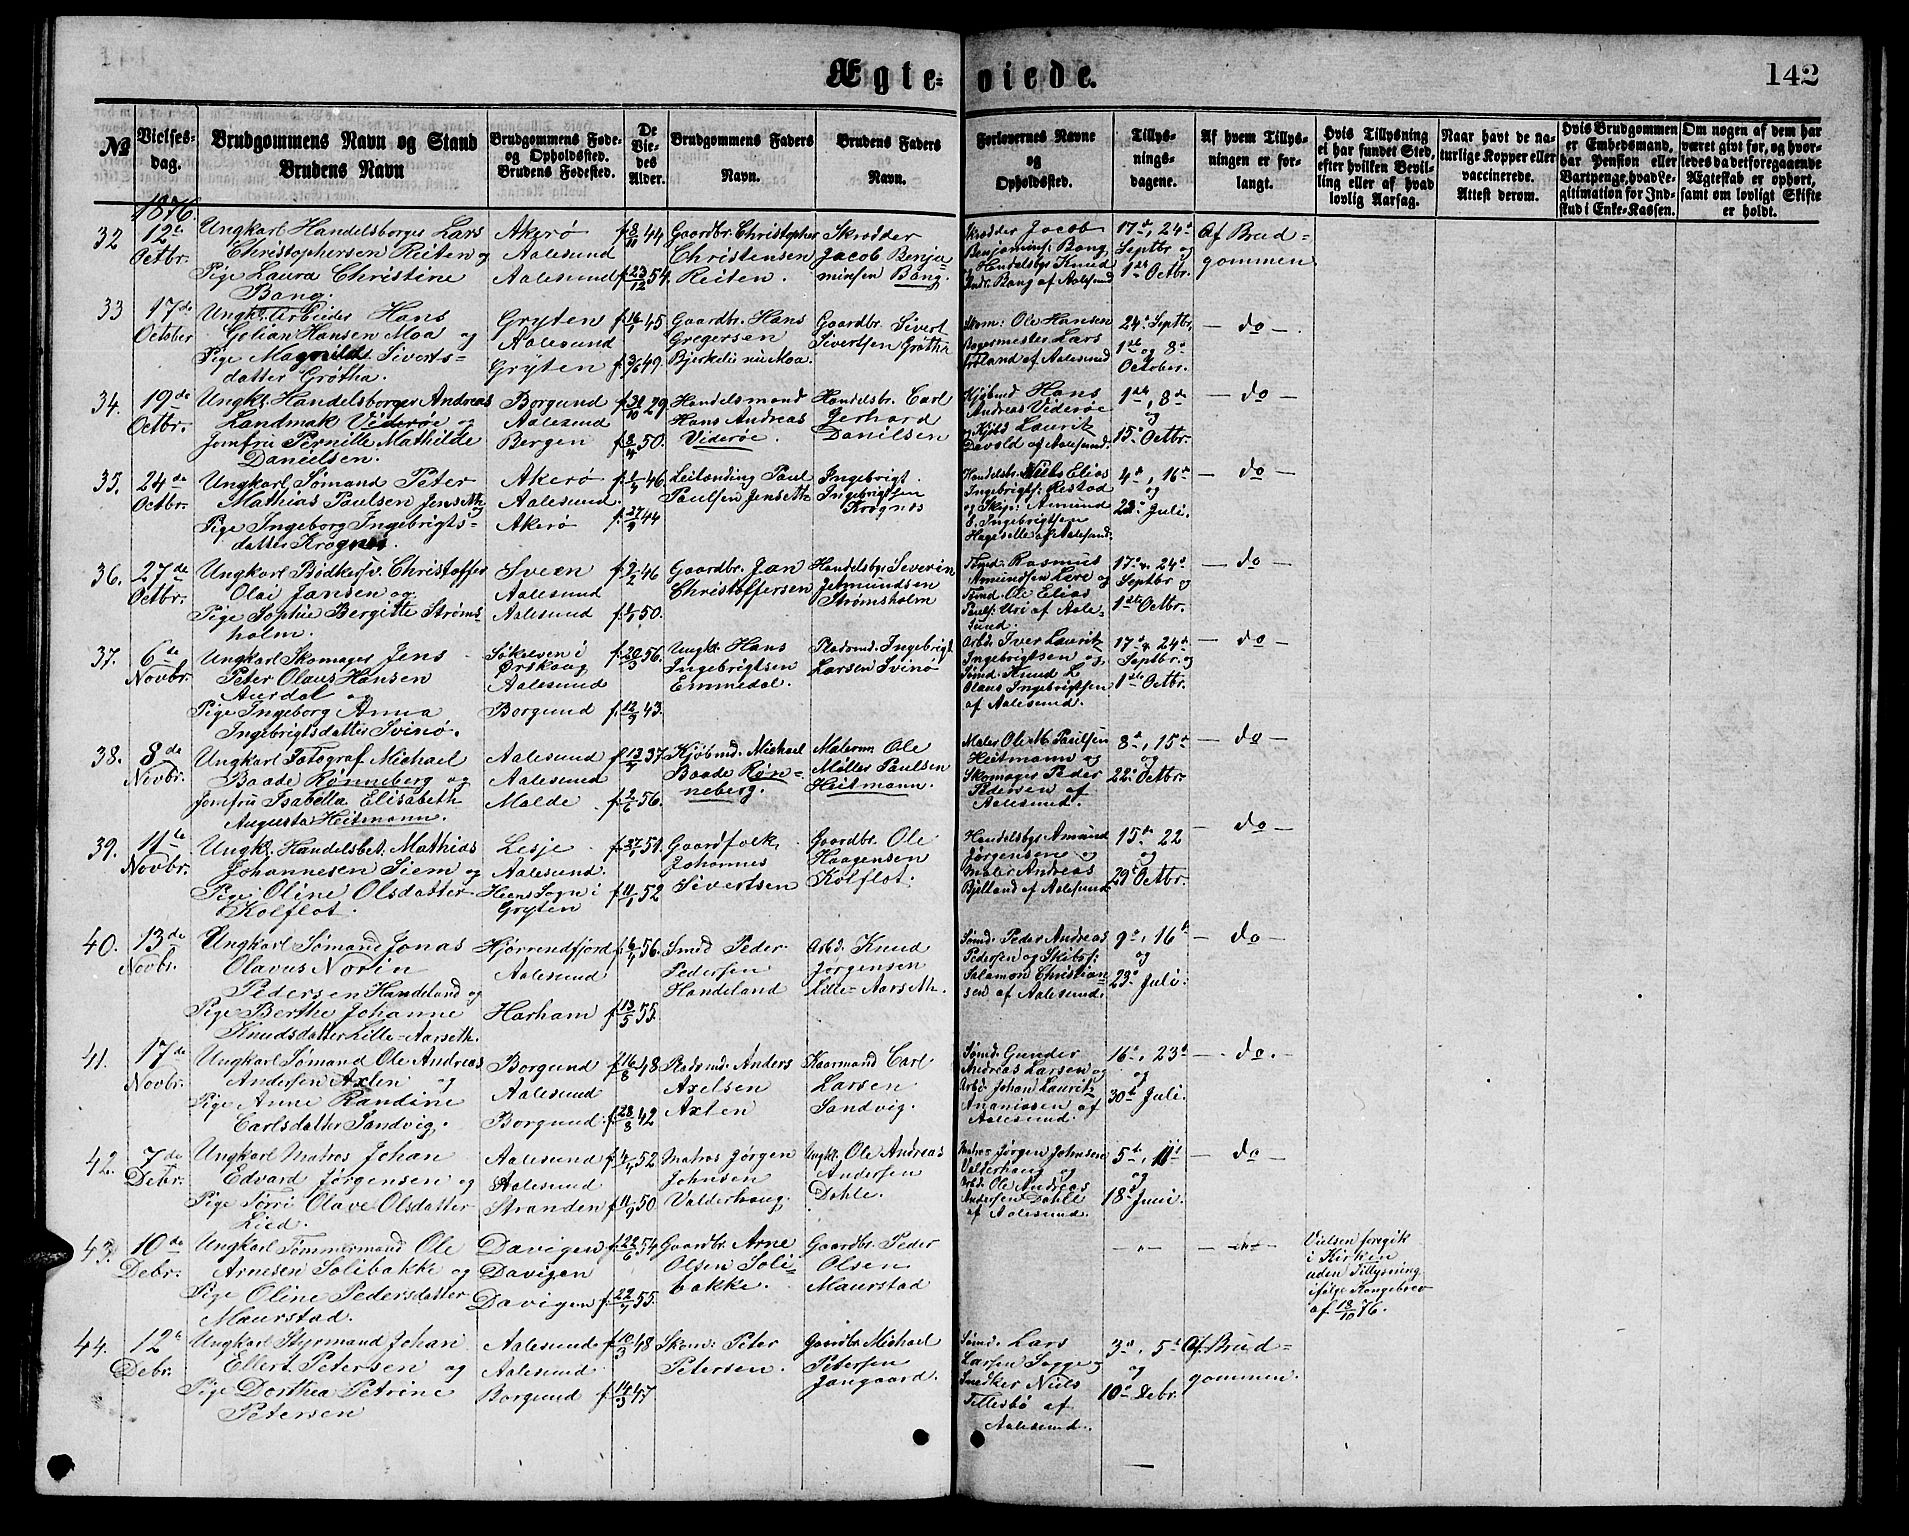 Ægte-
viede.
142
No
Vielses-
dag.
Brudgommens Navn og Stand
Brudens Navn
Brudgommens Føde-
og Opholdssted.
Brudens Fødested.
De
Vie-
des
Alder.
Brudgommens Faders
Navn.
Brudens Faders
Navn.
Forlovernes Navne
og
Opholdssted.
Tillys-
nings-
dagene.
Af hvem Tillys-
ningen er for-
langt.
Hvis Tillysning
ei har fundet Sted,
efter hvilken Bevil-
ling eller af hvad
lovlig Aarsag.
Naar havt de na-
turlige Kopper eller
vaccinerede.
Attest derom.
Hvis Brudgommen
er Embedsmand,
har Pension eller
Vartpenge, hvad Le-
gitimation for Ind-
skud i Enke-Kassen.
Om nogen af dem har
været gift før, og hvor-
ledes da det foregaaende
Ægteskab er ophørt,
samt om lovligt Skifte
er holdt.
1876.
32
12te
Octbr.
Ungkarl Handelsborger Lars
Christophersen Reiten og
Pige Laura Christine
Bang.
Akerø
Aalesund
Aalesund
f. 8/11 44
f. 23/12 54.
Gaardbr. Christopher
Christensen
Reiten.
Skrædder
Jacob Benja-
minsen Bang.
Skrædder Jacob
Benjamins: Bang
og Handelsbgr Knud
Andr. Bang af Aalesund
17de, 24de
Septbr og
1ste Octbr.
Af Brud-
gommen
33
17de
October
Ungk. Arbeider Hans
Golian Hansen Moa og
Pige Magnild Siverts-
datter Grøtha.
Gryten
Aalesund
Gryten
f. 16/1 45
f. 3/6 49.
Gaardbr. Hans
Gregersen
Bjerkeli nu Moa.
Gaardbr. Sivert
Sivertsen Grøtha
Skom: Ole Hansen
Bagermester Lars
af Aalesund
24de Septbr,
1ste og 8de
October.
— do —
34.
19de
Octbr.
Ungk. Handelsborger Andreas
Landmak Viderøe og
Jomfru Pernille Mathilde
Danielsen.
Borgund
Aalesund
Bergen
f. 31/10 29.
f. 8/4 50.
Handelsmand
Hans Andreas
Viderøe.
Handelsbr. Carl
Gerhard
Danilsen
Kjøbmd Hans
Andreas Viderøe
og Kjøbd Laurik
Davold af Aalesund.
1ste, 8de
og
15de Octbr.
— do —
35.
24de
Octbr.
Ungkarl Sømand Peter
Mathias Paulsen Jenseth og
Pige Ingeborg Ingebrigts-
datter Krognes.
Akerø
Aalesund.
Akerø
f. 1/7 46.
f. 27/9 44
Leilænding Paul
Paulsen Jenseth
Ingebrigt
Ingebrigtsen
Krognes
Handelsbr. Niels Elias
Ingebrigts: Restad
og Skip: Amund
S. Ingebrigtsen
Hageselle af Aalesund.
4de, 16de
og
23de Juli.
— do —
36.
27de
Octbr.
Ungkarl Bødkersv. Christoffer
Olai Jansen og
Pige Sophie Bergitte Strøms-
holm.
Sveen
Aalesund
Aalesund
f. 2/2 46
f. 1/1 50.
Gaardbr. Jan
Christoffersen
Handelsbgr Severin
Jetmundsen
Strømsholm
Rasmus
Amundsen Lere og
Sømd. Ole Elias
Pauls: Uri af Aale-
sund.
17de, 24de
Septbr og
1ste Octbr.
— do —
37.
6te
Novbr.
Ungkarl Skomager Jens
Peter Olaus Hansen
Aurdal og
Pige Ingeborg Anna
Ingebrigtsdatter Svinø.
Søkelven i
Ørskaug
Aalesund
Borgund
f. 20/3 56.
f. 12/9 43.
Ungk. Hans
Ingebrigtsen
Emmedal.
Pladsmd. Ingebrigt
Larsen Svinø
Arbd. Iver Laurik
Ingebrigtsen og
Sømd. Knud L.
Olaus Ingebrigtsen
af Aalesund.
17de, 24de
Septbr. og
1ste Octbr.
— do —
38.
8de
Novbr.
Ungkarl Fotograf Michael
Baade Rønneberg og
Jomfru Isabella Elisabeth
Augusta Heitmann.
Aalesund
Aalesund
Molde
f. 13/7 37.
f. 2/6 56.
Kjøbmd. Michael
Baade Røn-
neberg.
Malerm Ole
Møller Paulsen
Heitmann.
Maler Ole M. Paulsen
Heitmann og
Skomager Peder
Pedersen af
Aalesund.
8de, 15de
og
22de Octbr.
— do —
39.
11te
Novbr.
Ungk. Handelsbet. Mathias
Johannesen Siem og
Pige Oline Olsdatter
Kolflot.
Lesje
Aalesund.
Heens Sogn i
Gryten
f. 27/1 51.
f. 11/1 52
Gaardfolk
Johannes
Sivertsen
Gaardbr. Ole
Haagensen
Kolflot.
Handelsbgr Amund
Jørgensen og
Maler Andreas
Bjelland af Aalesund
15de, 22
og
29de Octbr.
— do —
40.
13de
Novbr.
Ungkarl Sømand Jonas
Olavus Norin
Pedersen Handeland og
Pige Berthe Johanne
Knudsdatter Lille-Aarseth.
Hjørrendfjord
Aalesund
Harham
f. 6/7 56.
f. 13/5 55.
Smed Peder
Pedersen
Handeland
Arbd. Knud
Jørgensen
Lille-Aarseth.
Sømd. Peder Andreas
Pedersen og Skibsf:
Salamon Christian-
sen af Aalesund.
9de, 16de
og
23de Juli.
— do —
41.
17de
Novbr.
Ungkarl Sømand Ole Andreas
Andersen Axlen og
Pige Anne Randine
Carlsdatter Sandvig.
Borgund
Aalesund
Borgund.
f. 16/8 48
f. 28/8 42
Pladsmd. Anders
Axelsen
Axlen
Kaarmand Carl
Larsen
Sandvig.
Sømd. Gunder
Andreas Larsen og
Arbd. Johan Lauritz
Ananiassen af
Aalesund.
16de, 23de
og
30de Juli.
— do. —
42.
7de
Debr.
Ungkarl Matros Johan
Edvard Jørgensen og
Pige Sørri Olave Olsdatter
Lied.
Aalesund
Aalesund
Stranden
f. 4/7 52
f. 11/9 50.
Matros Jørgen
Johnsen
Valderhaug.
Ungk. Ole Andreas
Andersen
Dahle.
Matros Jørgen Johnsen
Valderhaug og
Arbd. Ole Andreas
Andersen Dahle
af Aalesund.
5te, 11te
og
18de Juni.
— do —
43.
10de
Debr.
Ungkarl Tømmermand Ole
Arnesen Solibakke og
Pige Oline Pedersdatter
Maurstad.
Davigen
Davigen
Davigen
f. 22/6 54
f. 22/7 55.
Gaardbr. Arne
Olsen Soli-
bakke.
Gaardbr. Peder
Olsen
Maurstad
— " —
Vielsen foregik
i Kirken
uden Tillysning
ifølge Kongebrev
af 18/10 76.
44.
12te
Debr.
Ungkarl Styrmand Johan
Ellert Petersen og
Pige Dorthea Petrine
Petersen
Aalesund
Aalesund
Borgund
f. 10/3 48
f. 14/3 47
Skom: Peter
Petersen.
Gaardbr. Michael
Petersen
Jangaard.
Sømd. Lars
Larsen Sogge og
Snedker Niels
Tillesbø af
Aalesund.
3de, 5te
og
10de Debr.
Af Brud-
gommen.